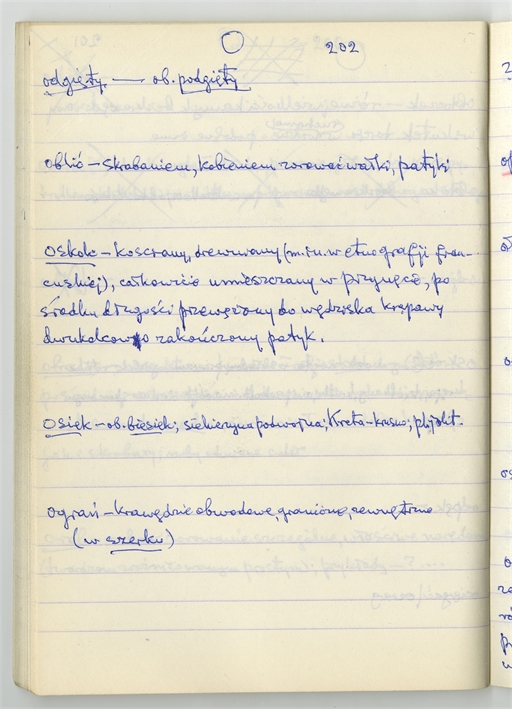 202
odgięty — ob. podgięty
oblić – skrobaniem, wałki, patyki
oskok – kościany, drewniany (m.in. w etnografji fran-
cuskiej), całkowicie umieszczany w przynęcie, po
środku długości przewęzony do wędziska krępawy
dwukolcowo zakończony patyk.
osięk – ob. bięsięk; siekieryna podwojna; Kreta – ; plyolit.
ograń – krawędzie obwodowe, granione, zewnętrzne
(w szerku)